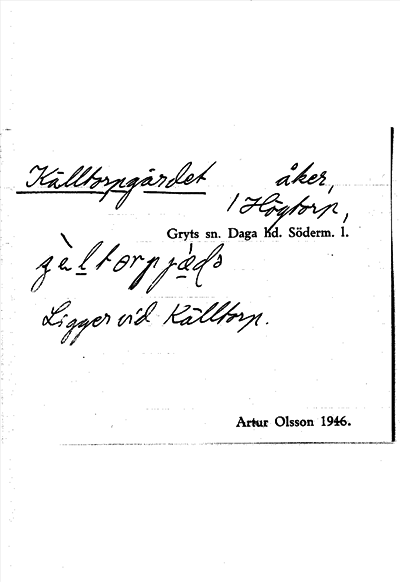 Källtorpgärdet åker,
/ Högtorp,
Gryts sn. Daga hd. Söderm. l.
Ligger vid Källtorp.
Artur Olsson 1946.